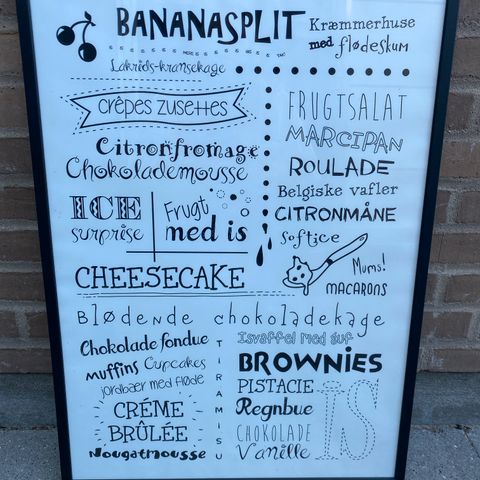 BANANASPLIT
Kræmmerhuse
med flødeskum
Lakrids-kransekage
crêpes zusettes
FRUGTSALAT
MARCIPAN
Citronfromage
Chokolademousse
ROULADE
Belgiske vafler
ICE
surprise
Frugt
med is
CITRONMÅNE
Softice
Mums!
macarons
CHEESECAKE
Blødende chokoladekage
Chokolade fondue
Isvaffel med guf
muffins Cupcakes
jordbær med fløde
BROWNIES
TIRAMISU
CRÉME
BRÛLÉE
Nougatmousse
PISTACIE
Regnbue
CHOKOLADE
Vanille
IS